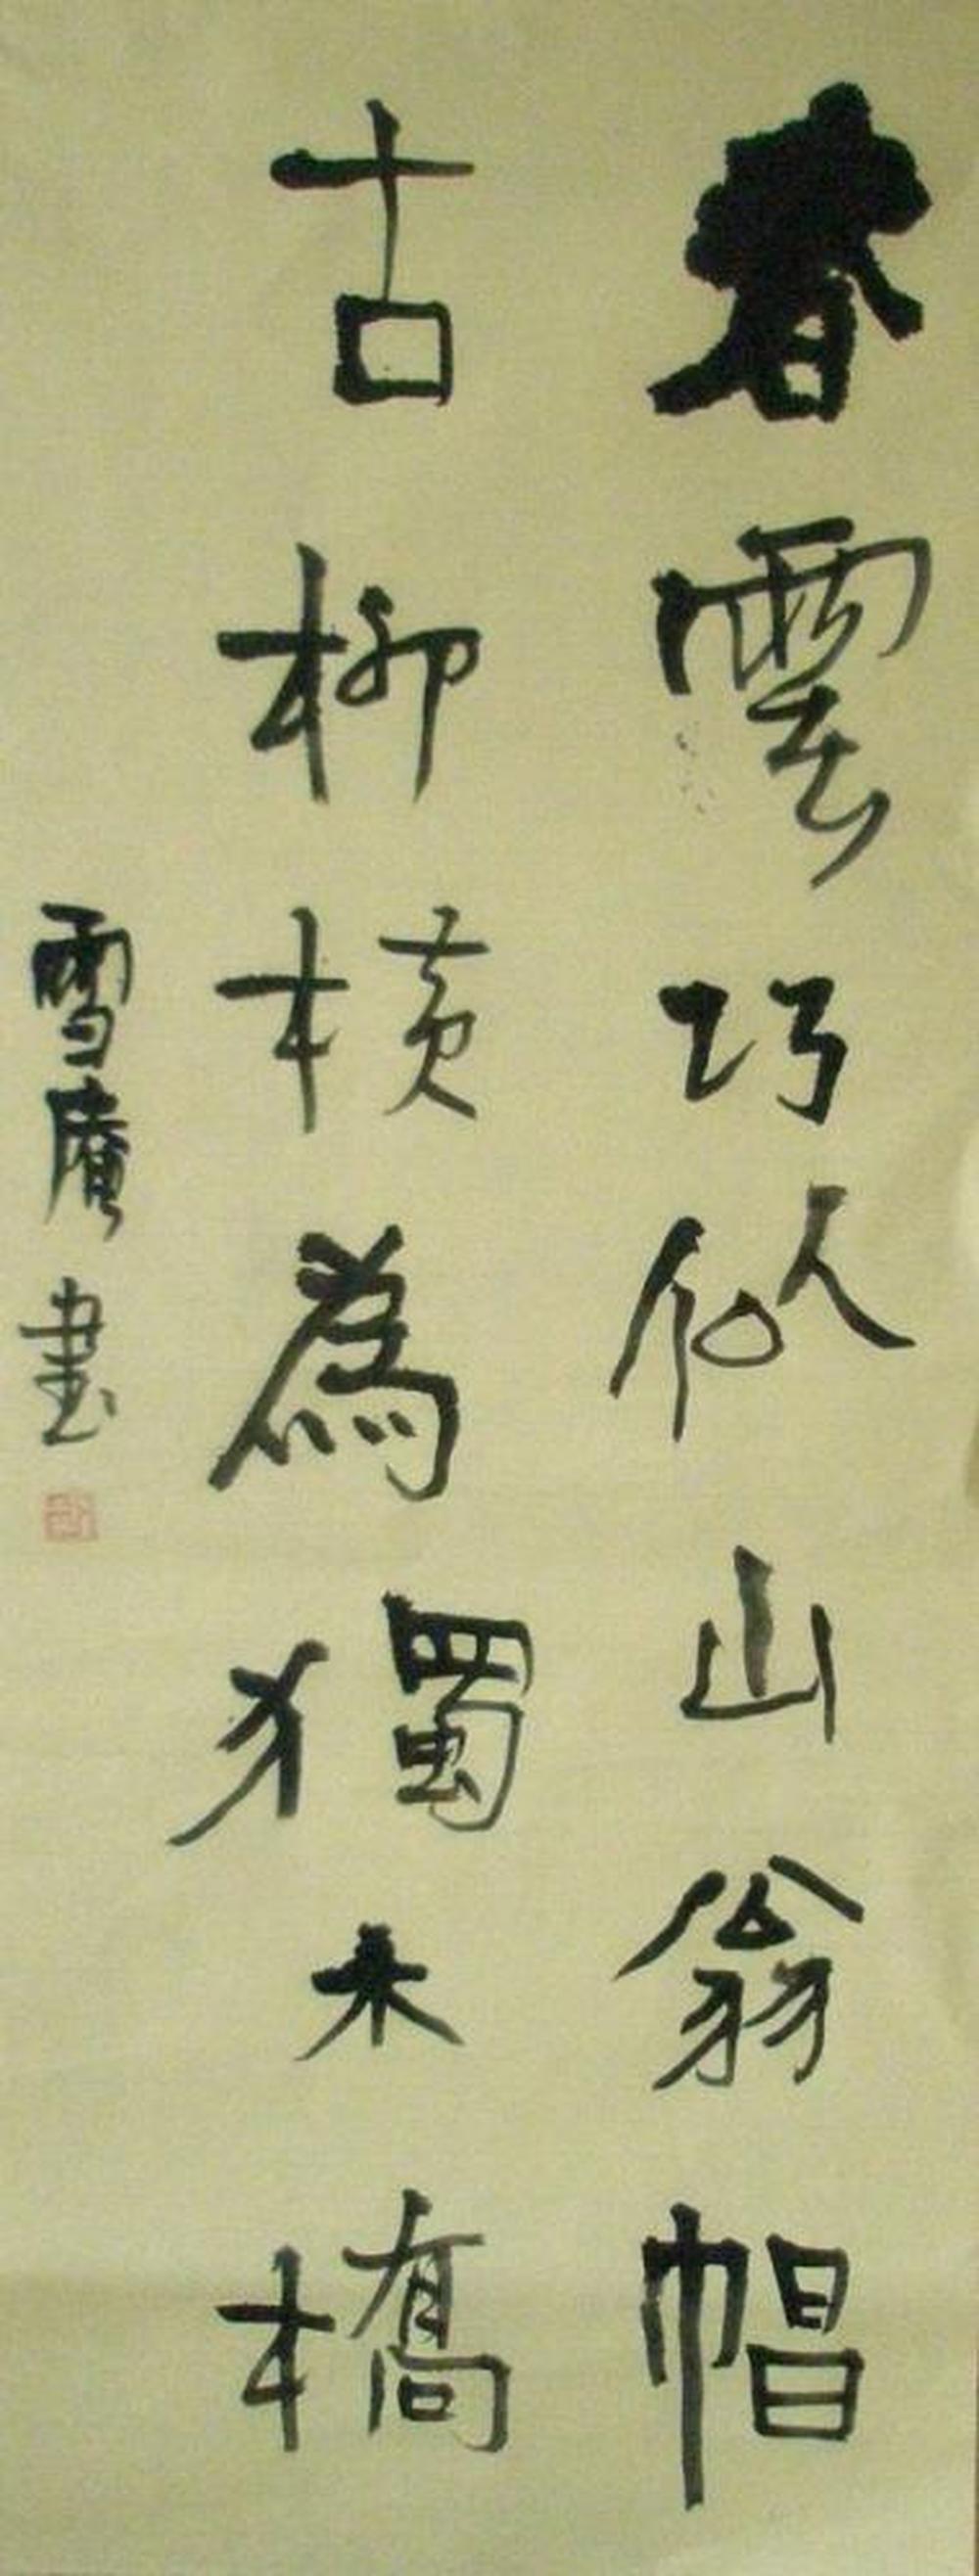 春雲巧似山翁帽
古柳橫為獨木橋
雪庵書